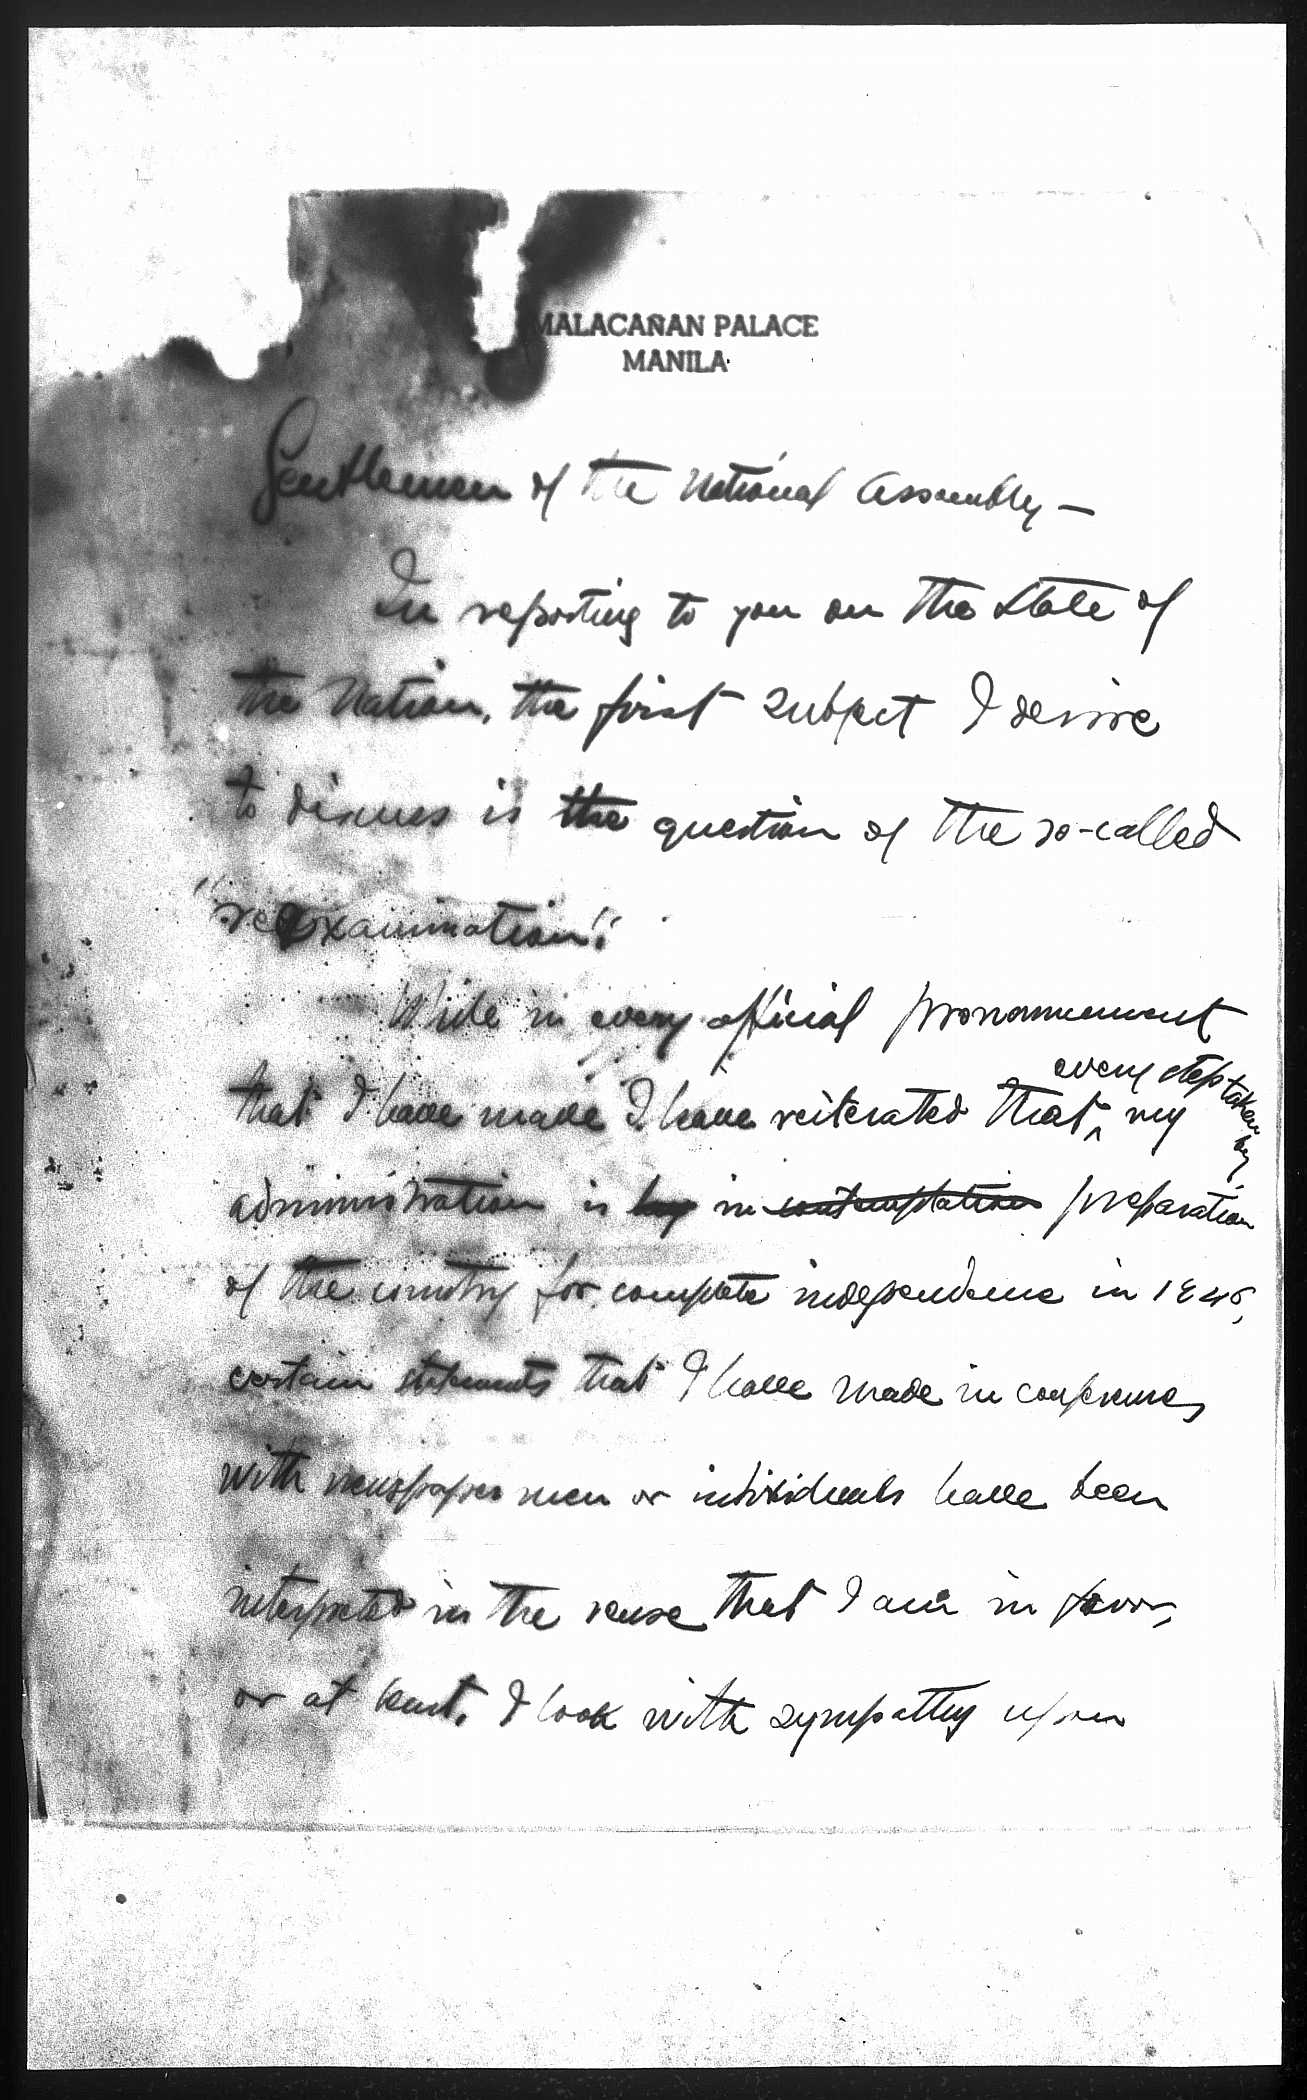 MALACAÑAN PALACE
MANILA
Gentlemen of the National Assembly —
In reporting to you on the State of
the Nation, the first subject I desire
to discuss is the question of the so-called
"reexamination".
While in every official pronouncement
every step taken by
that I have made I have reiterated that my
administration is in contemplation preparation
of the country for complete independence in 1946,
certain statements that I have made in conferences
with newspaper men or individuals have been
interpreted in the sense that I am in favor,
or at least, I look with sympathy upon